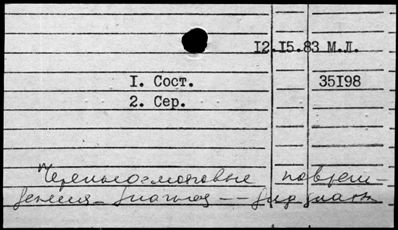 12.15.83 М.Л.
I. Сост. 35I98
2. Сер.
Черепно-мозговые повреж-
дения - диагноз --